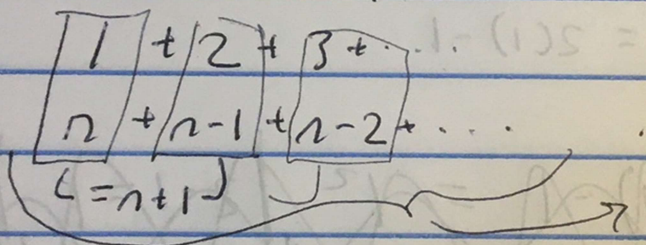 1 + 2 + 3 + ...
n + n-1 + n-2 + ....
= n+1